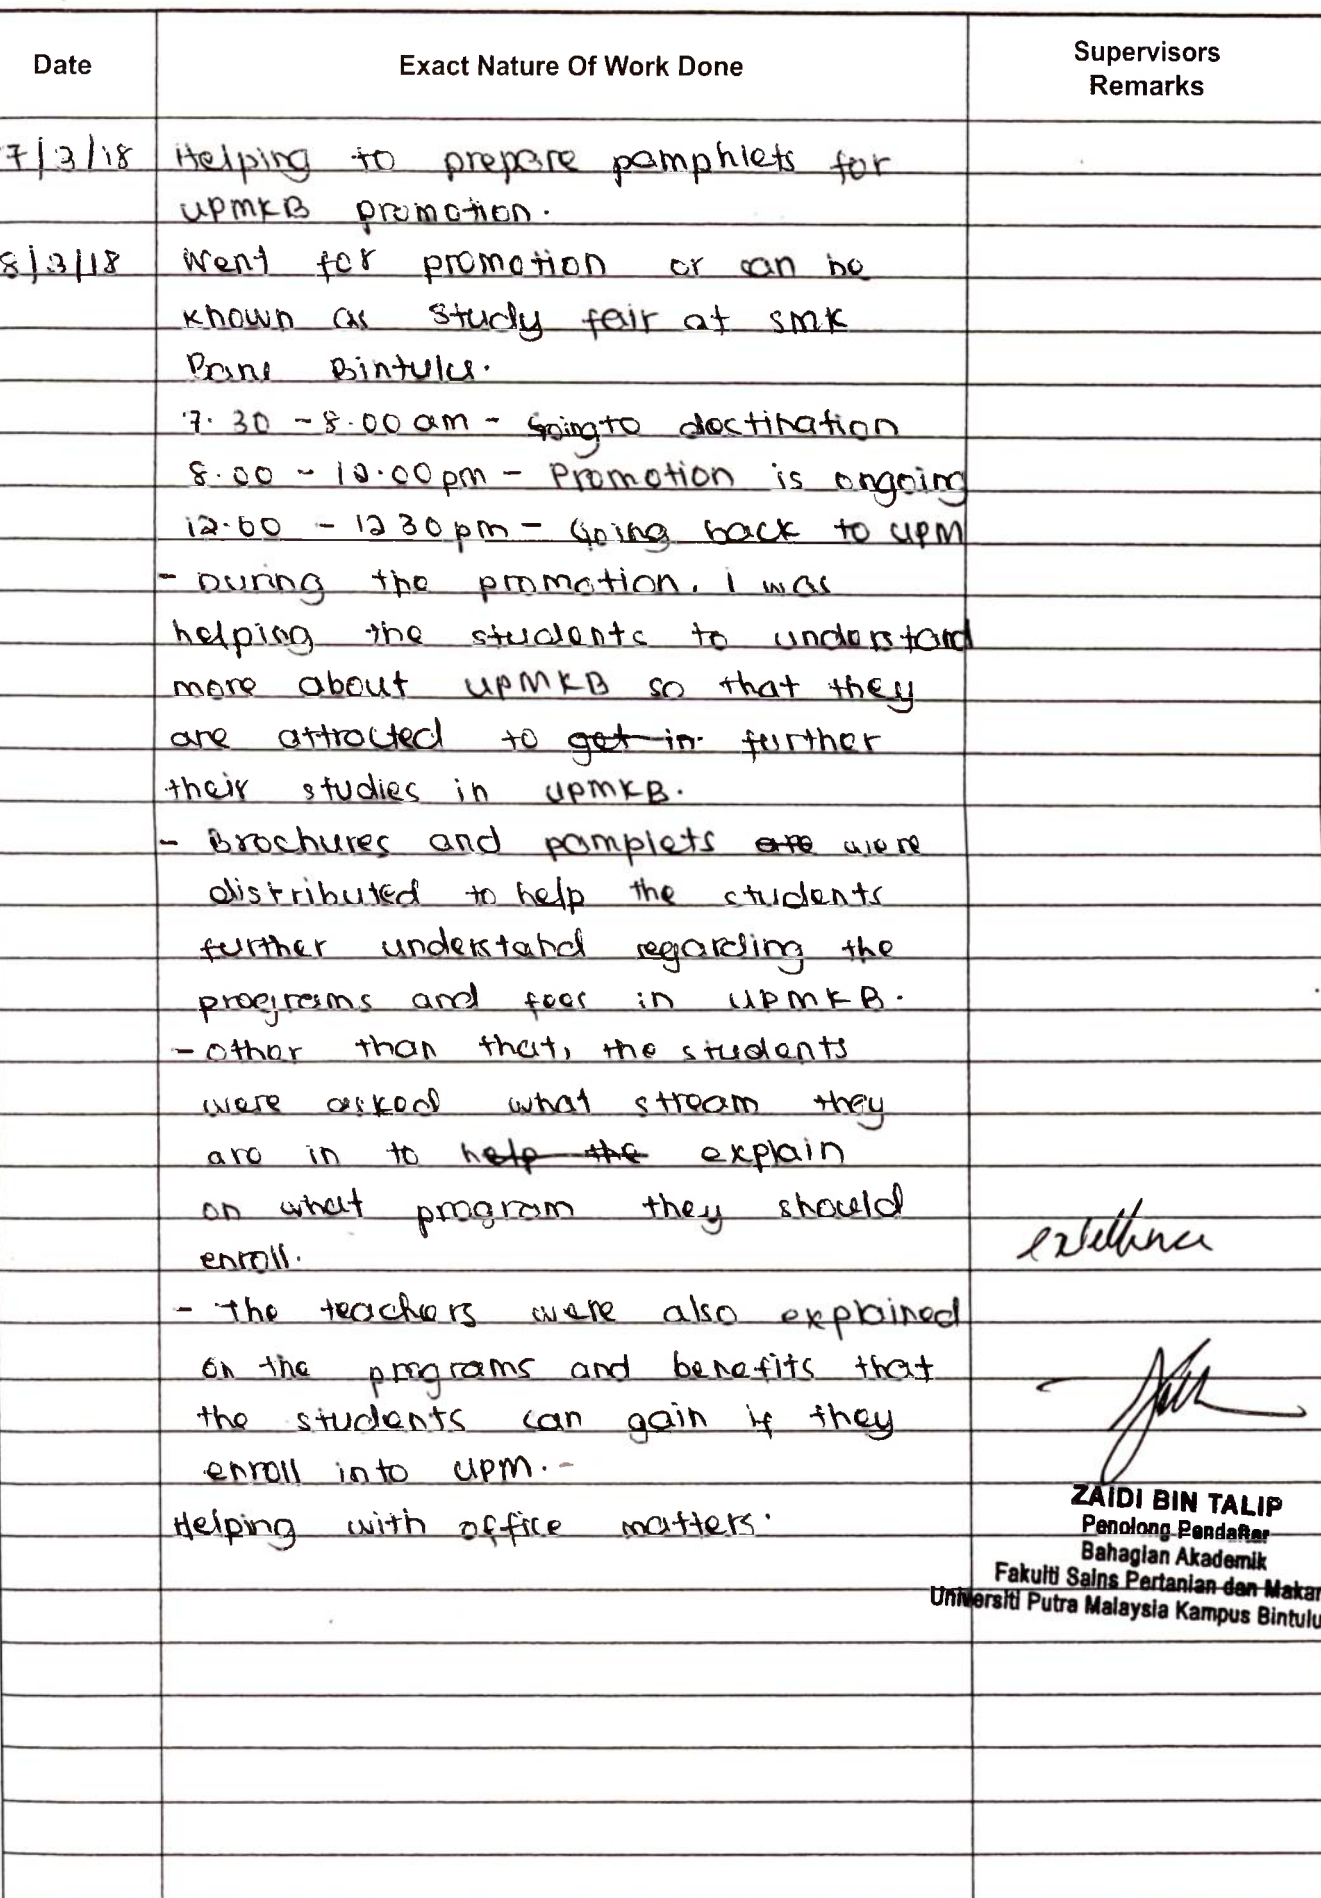 Date
Exact Nature Of Work Done
Supervisors
Remarks
7/3/18 Helping to prepare pamphlets for
UPMKB promotion.
8/3/18 Went for promotion or can be
known as study fair at SMK
Bintulu.
7.30 - 8.00 am - Going to destination
8.00 - 12.00 pm - Promotion is ongoing
12.00 - 1230 pm - Going back to UPM
- During the promotion, I was
helping the students to understand
more about UPMKB so that they
are attracted to get in further
their studies in UPMKB.
- Brochures and pamplets are were
distributed to help the students
further understand regarding the
programs and fees in UPMKB.
- Other than that, the students
were asked what stream they
are in to help the explain
on what program they should
enroll.
excellence
- The teachers were also explained
on the programs and benefits that
the students can gain if they
enroll into UPM. -
Helping with office matters.
ZAIDI BIN TALIP
Penolong Pendaftar
Bahagian Akademik
Fakulti Sains Pertanian dan Makan
Universiti Putra Malaysia Kampus Bintulu